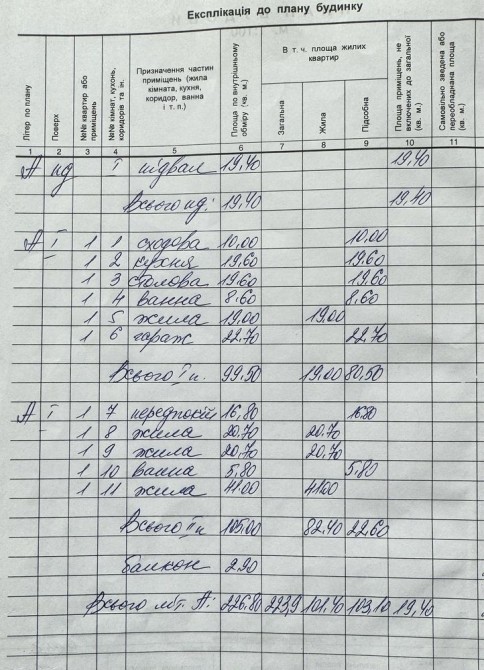 Експлікація до плану будинку
Літер по плану | Поверх | №№ квартир або приміщень | №№ кімнат, кухонь, коридорів та ін. | Призначення частин приміщень (жила кімната, кухня, коридор, ванна і т. п.) | Площа по внутрішньому обміру (кв. м.) | В т. ч. площа жилих квартир | Загальна | Жила | Підсобна | Площа приміщень, не включених до загальної (кв. м.) | Самовільно зведена або переобладнана площа (кв. м.)
1 2 3 4 5 6 7 8 9 10 11
А пд І підвал 19,40 19,40
Всього пд: 19,40 19,40
А І 1 1 сходова 10,00 10,00
1 2 кухня 19,60 19,60
1 3 столова 19,60 19,60
1 4 ванна 8,60 8,60
1 5 жила 19,00 19,00
1 6 гараж 22,70 22,70
Всього І п. 99,50 19,00 80,50
А І 1 7 передпокій 16,80 16,80
1 8 жила 20,70 20,70
1 9 жила 20,70 20,70
1 10 ванна 5,80 5,80
1 11 жила 41,00 41,00
Всього ІІ п 105,00 82,40 22,60
балкон 2,90
Всього літ. А: 226,80 223,9 101,40 103,10 19,40